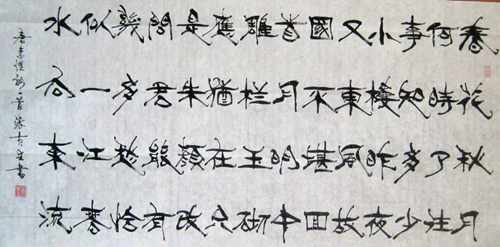 春花秋月
何時了往
事知多少
小樓昨夜
又東風故
國不堪回
首月明中
雕栏玉砌
應猶在只
是朱顏改
問君能有
幾多愁恰
似一江春
水向東流
唐李煜詞一首書